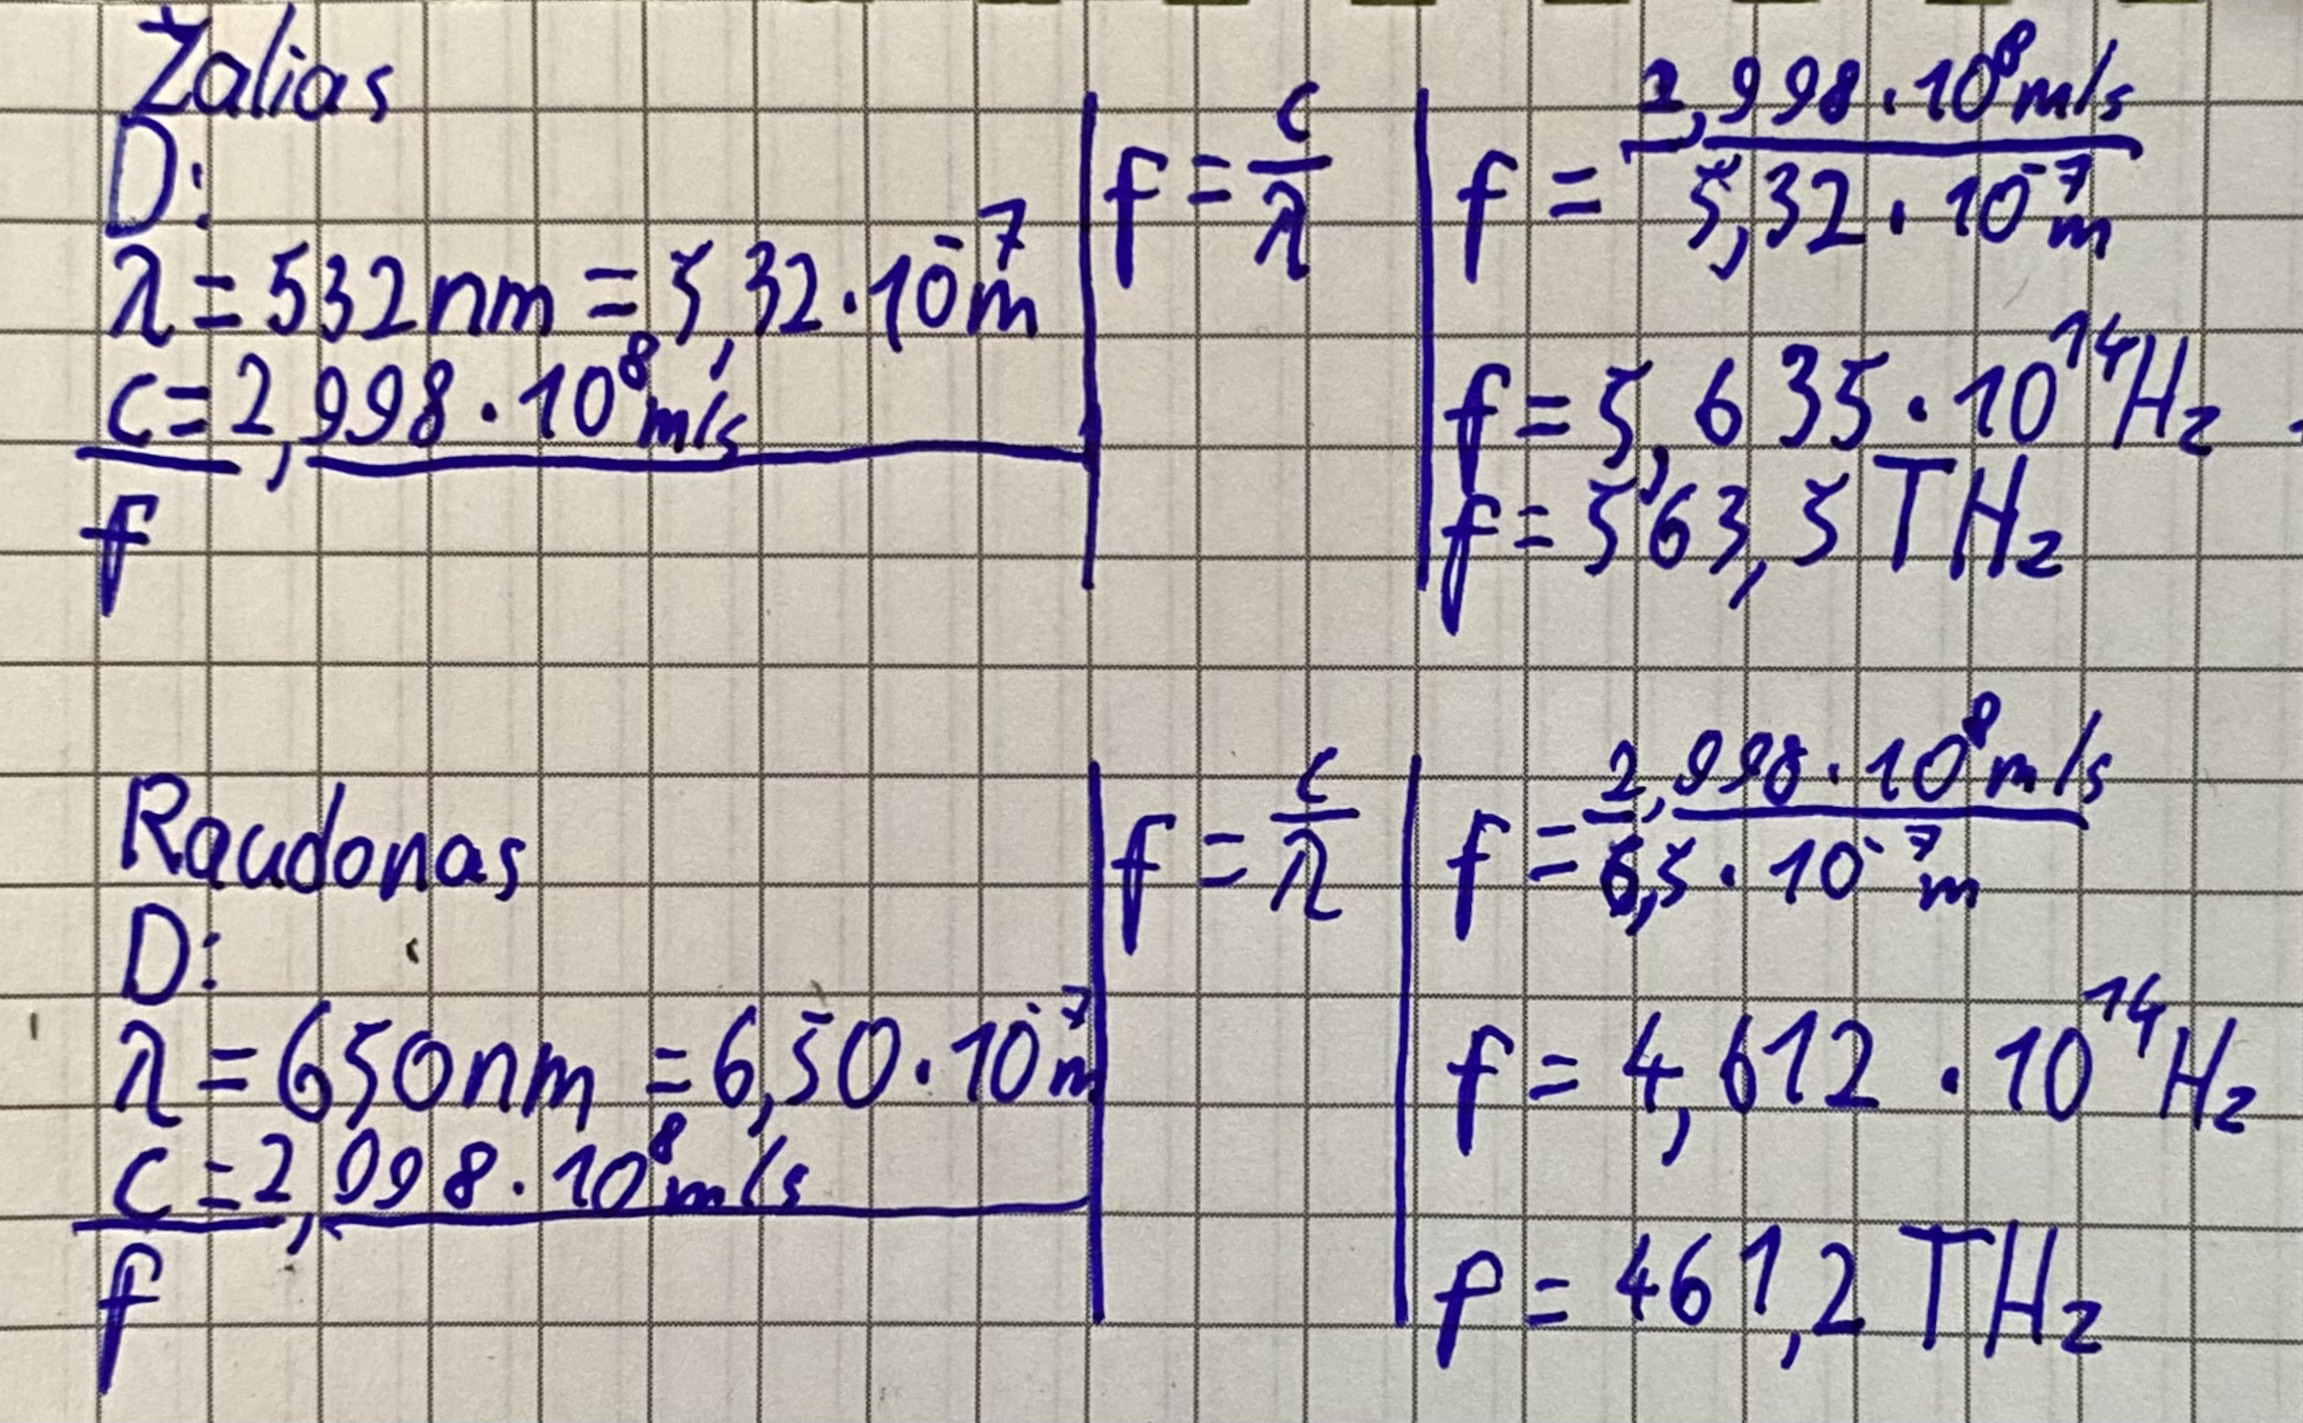 Žalias
D:
λ = 532 nm = 5,32 · 10⁻⁷ m
c = 2,998 · 10⁸ m/s
f
f = c/λ
f = 2,998 · 10⁸ m/s / 5,32 · 10⁻⁷ m
f = 5,635 · 10¹⁴ Hz
f = 563,5 THz
Raudonas
D:
λ = 650 nm = 6,50 · 10⁻⁷ m
c = 2,998 · 10⁸ m/s
f
f = c/λ
f = 2,998 · 10⁸ m/s / 6,5 · 10⁻⁷ m
f = 4,612 · 10¹⁴ Hz
f = 461,2 THz